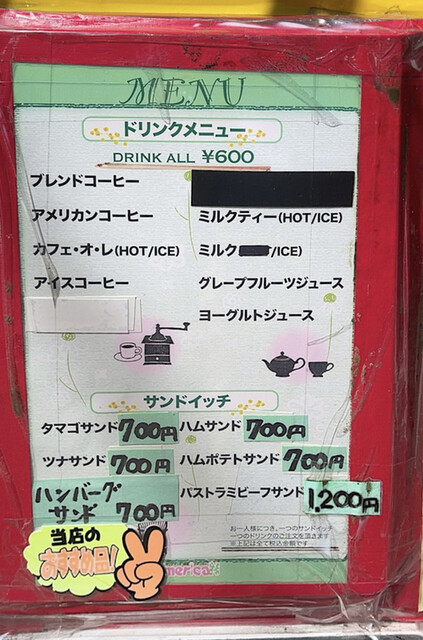 MENU
ドリンクメニュー
DRINK ALL ¥600
ブレンドコーヒー
アメリカンコーヒー
ミルクティー(HOT/ICE)
カフェ・オ・レ(HOT/ICE)
ミルク /ICE)
アイスコーヒー
グレープフルーツジュース
ヨーグルトジュース
サンドイッチ
タマゴサンド 700円
ハムサンド 700円
ツナサンド 700円
ハムポテトサンド 700円
ハンバーグ
サンド 700円
パストラミビーフサンド 1,200円
当店の
おすすめ品!
お一人様につき、一つのサンドイッチ
一つのドリンクのご注文を頂きます
※上記は全て税込金額です
merica